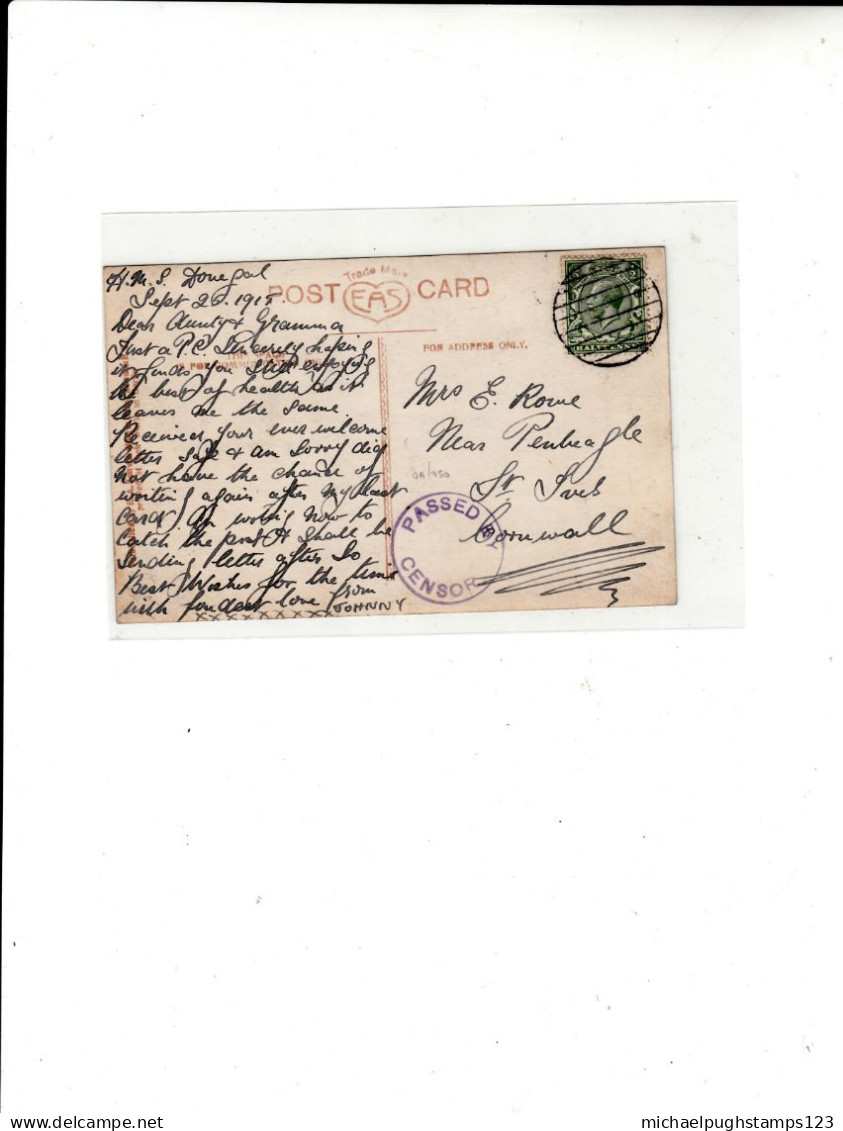 H.M.S. Donegal
Sept 26. 1915
Dear Aunty & Gramma
Just a P.C. Sincerely hoping
it finds you still enjoying
the best of health as it
leaves me the same.
Received your ever welcome
letter safe & am sorry did
not have the chance of
writing again after my last
card. Am writing now to
catch the post & shall be
sending letter after So
Best Wishes for the time
with fondest love from
JOHNNY
xxxxxxxxxx
Trade Mark
POST EAS CARD
FOR ADDRESS ONLY.
HALFPENNY
Mrs E. Rowe
Near Penbeagle
St Ives
Cornwall
OA/950
PASSED BY
CENSOR
michaelpughstamps123